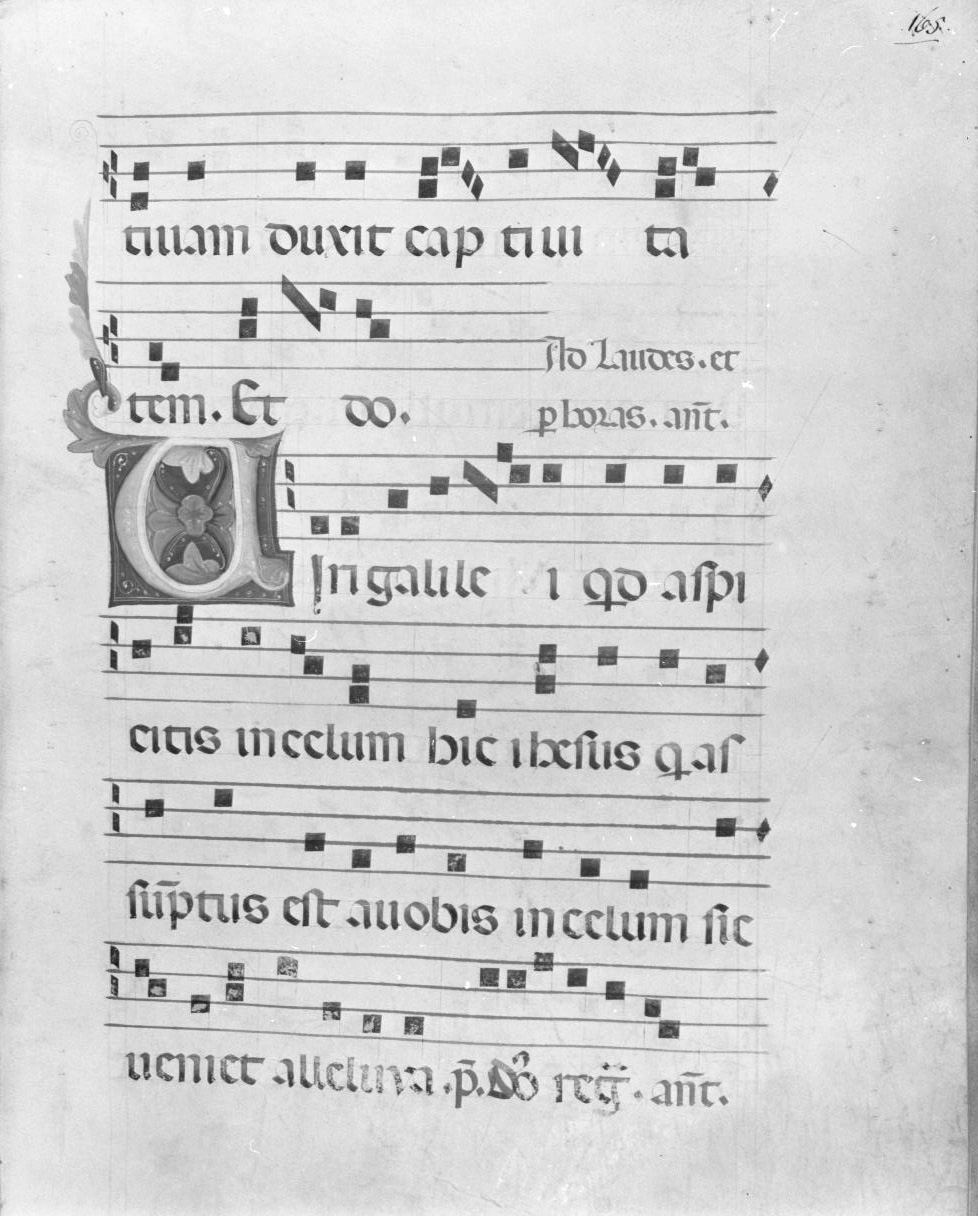 165.
tiuam duxit cap tiui ta
tem. Et do.
Ad Laudes. et
p horas. an̄t.
Uiri galile i qd aspi
citis in celum hic ihesus q as
sūptus est a uobis in celum sic
ueniet alleluya. p̄. Dn̄s reg̃. an̄t.